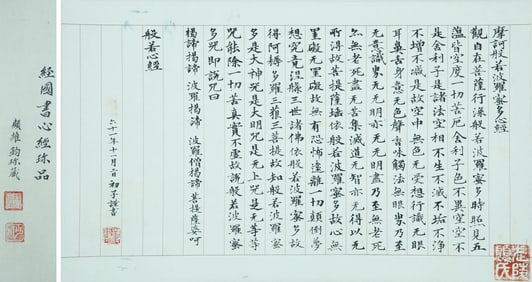 摩訶般若波羅蜜多心經
觀自在菩薩行深般若波羅蜜多時照見五
蘊皆空度一切苦厄舍利子色不異空空不
是舍利子是諸法空相不生不滅不垢不淨
不增不減是故空中無色无受想行識无眼
耳鼻舌身意无色聲香味觸法無眼界乃至
无意識界无无明亦无无明盡乃至無老死
亦無老死盡无苦集滅道无智亦无得以无
所得故菩提薩埵依般若波羅蜜多故心無
罣礙无罣礙故無有恐怖遠離一切顛倒夢
想究竟涅槃三世諸佛依般若波羅蜜多故
得阿耨多羅三藐三菩提故知般若波羅蜜
多是大神咒是大明咒是无上咒是无等等
咒能除一切苦真實不虛故說般若波羅蜜
多咒即說咒曰
揭諦揭諦 波羅揭諦 波羅僧揭諦 菩提薩婆呵
般若心經
六十一年十二月
經國書心經珍品
珍藏